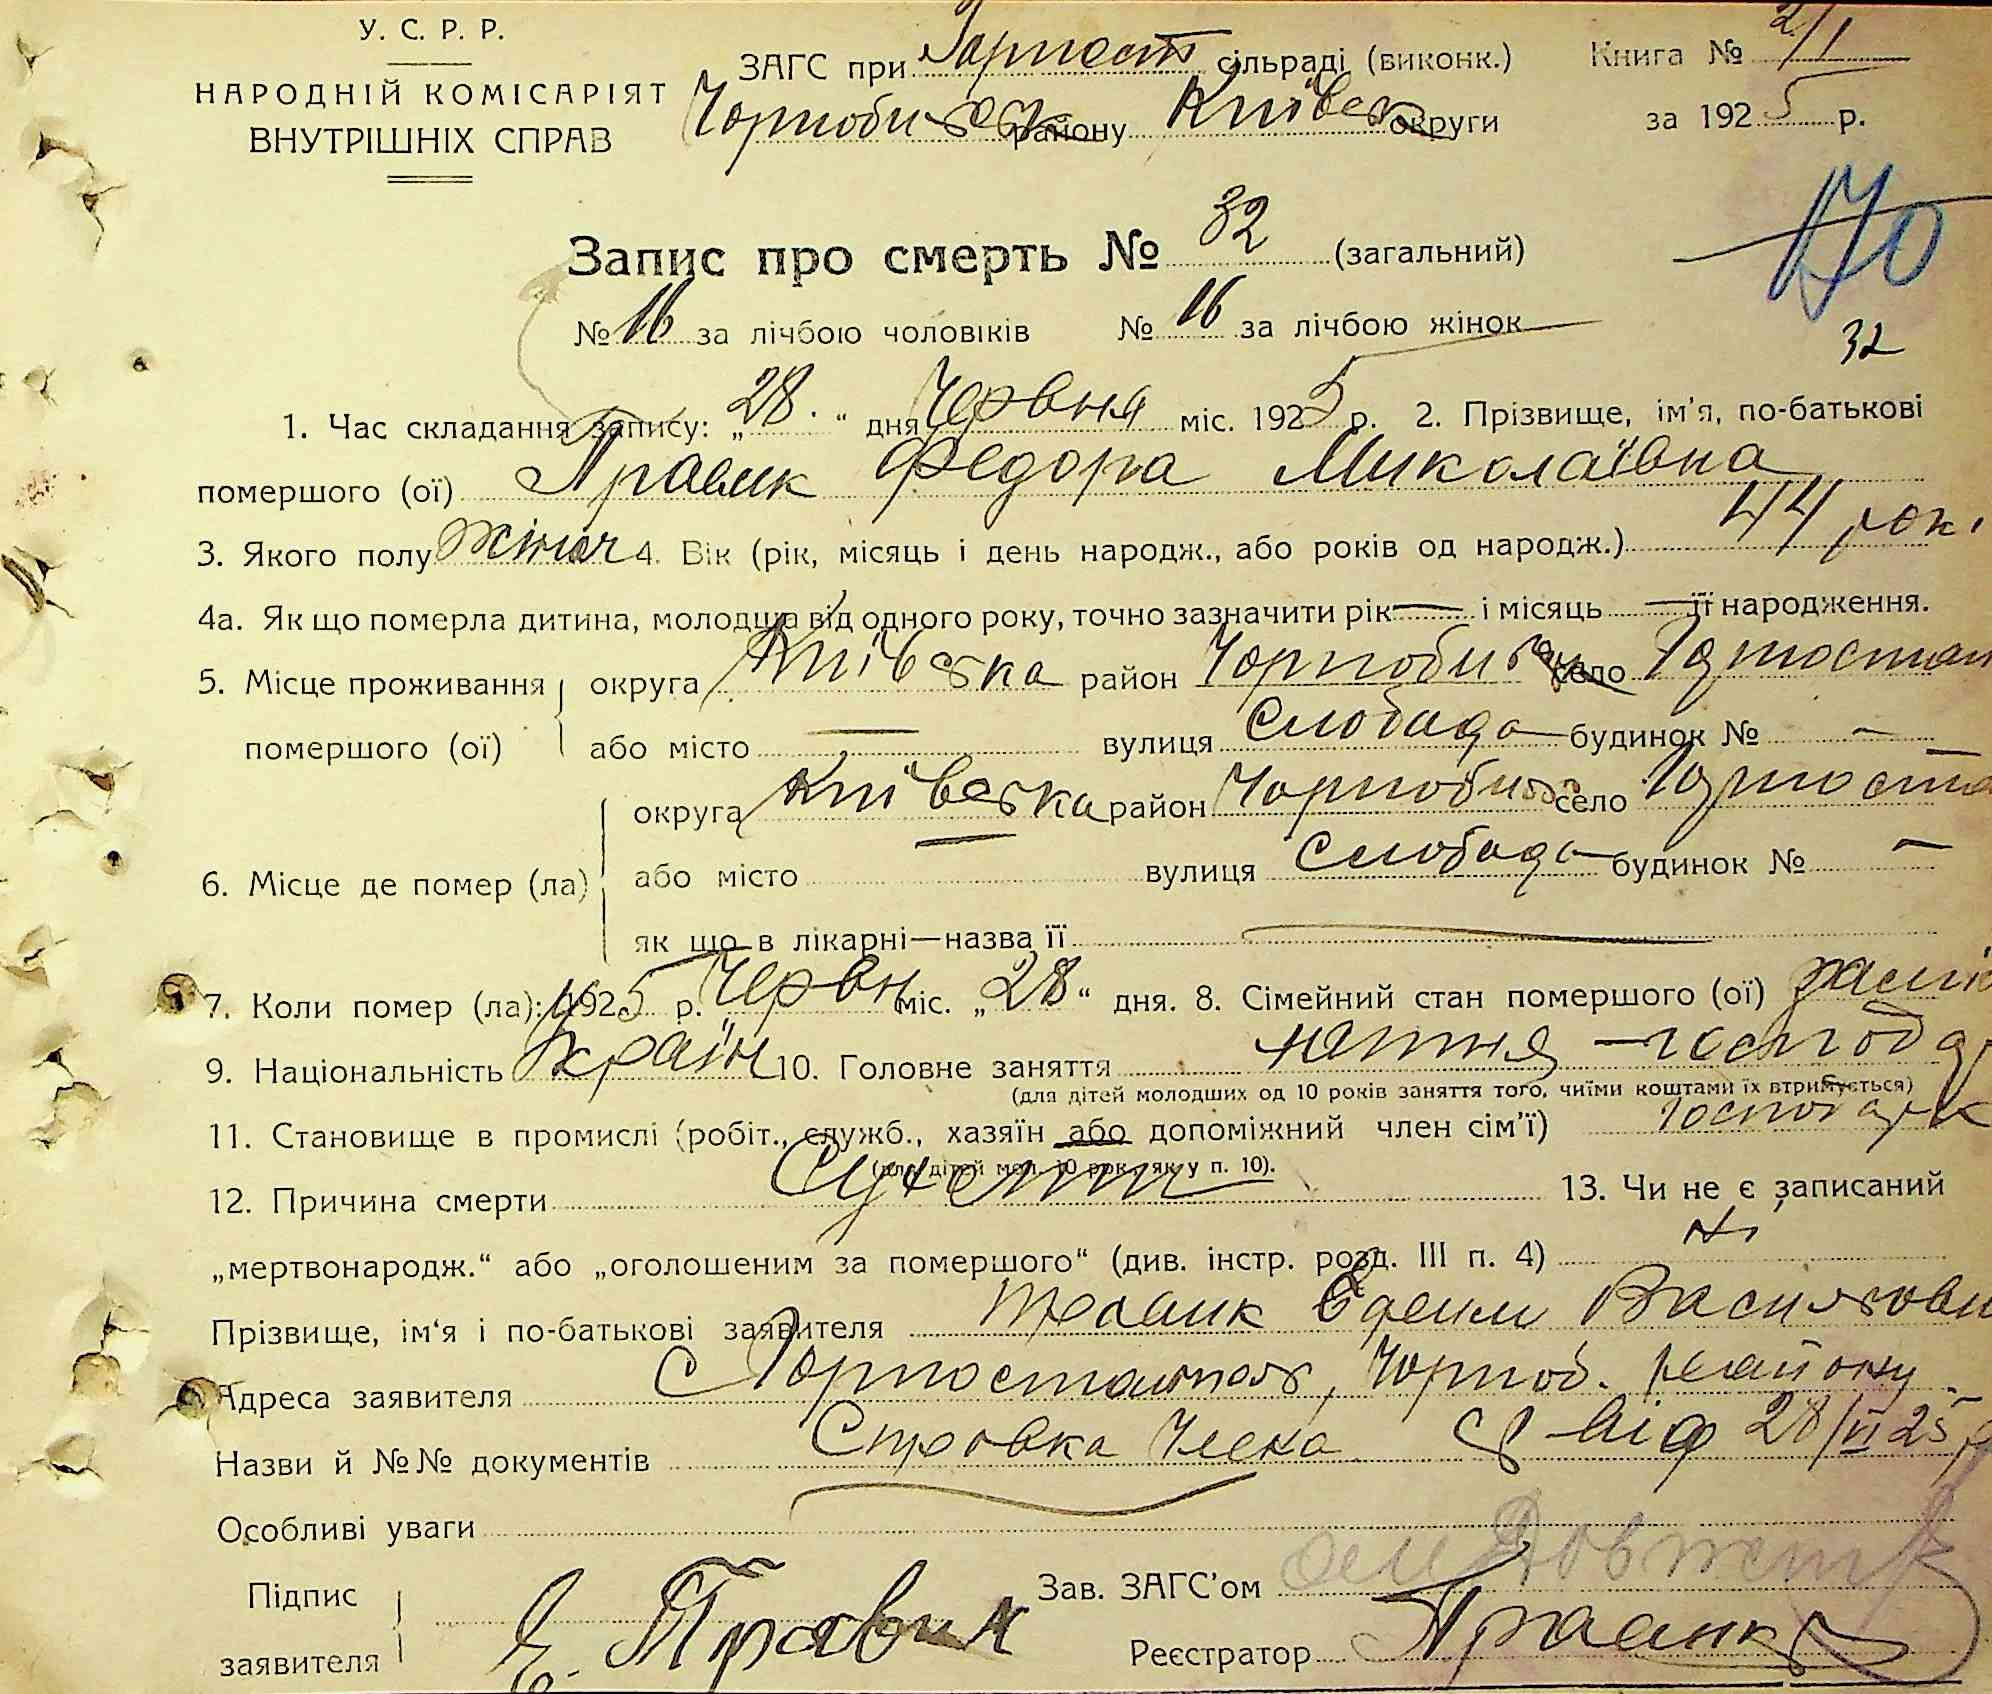 У. С. Р. Р.
НАРОДНІЙ КОМІСАРІЯТ
ВНУТРІШНІХ СПРАВ
ЗАГС при Горност сільраді (виконк.) Книга № 2/1
Чорнобильськ району Київськ округи за 1925 р.
170
Запис про смерть № 32 (загальний)
№ 16 за лічбою чоловіків № 16 за лічбою жінок
32
1. Час складання запису: „28“ дня Червня міс. 1925 р. 2. Прізвище, ім'я, по-батькові
помершого (ої) Правик Федора Миколаївна
3. Якого полу жіноч 4. Вік (рік, місяць і день народж., або років од народж.) 44 рок.
4а. Як що померла дитина, молодша від одного року, точно зазначити рік — і місяць — її народження.
5. Місце проживання помершого (ої) округа Київська район Чорнобильськ село Горностай
або місто — вулиця Слобода будинок № —
6. Місце де помер (ла) округа Київська район Чорнобил село Горноста
або місто — вулиця Слобода будинок № —
як що в лікарні—назва її —
7. Коли помер (ла): 1925 р. Червн міс. „28“ дня. 8. Сімейний стан помершого (ої) заміж
9. Національність Україн 10. Головне заняття
(для дітей молодших од 10 років заняття того, чиїми коштами їх втримується)
11. Становище в промислі (робіт., служб., хазяїн або допоміжний член сім'ї) Господарк
(для дітей мол. 10 рок., як у п. 10).
12. Причина смерти Сухоти 13. Чи не є записаний
„мертвонародж.“ або „оголошеним за помершого“ (див. інстр. розд. III п. 4) Ні
Прізвище, ім'я і по-батькові заявителя Правик Василови
Адреса заявителя с Горностайполь, Чорноб. району.
Назви й №№ документів від 28/VI 25 р
Особливі уваги
Підпис заявителя Є. Правик
Зав. ЗАГС'ом
Реєстратор Правик